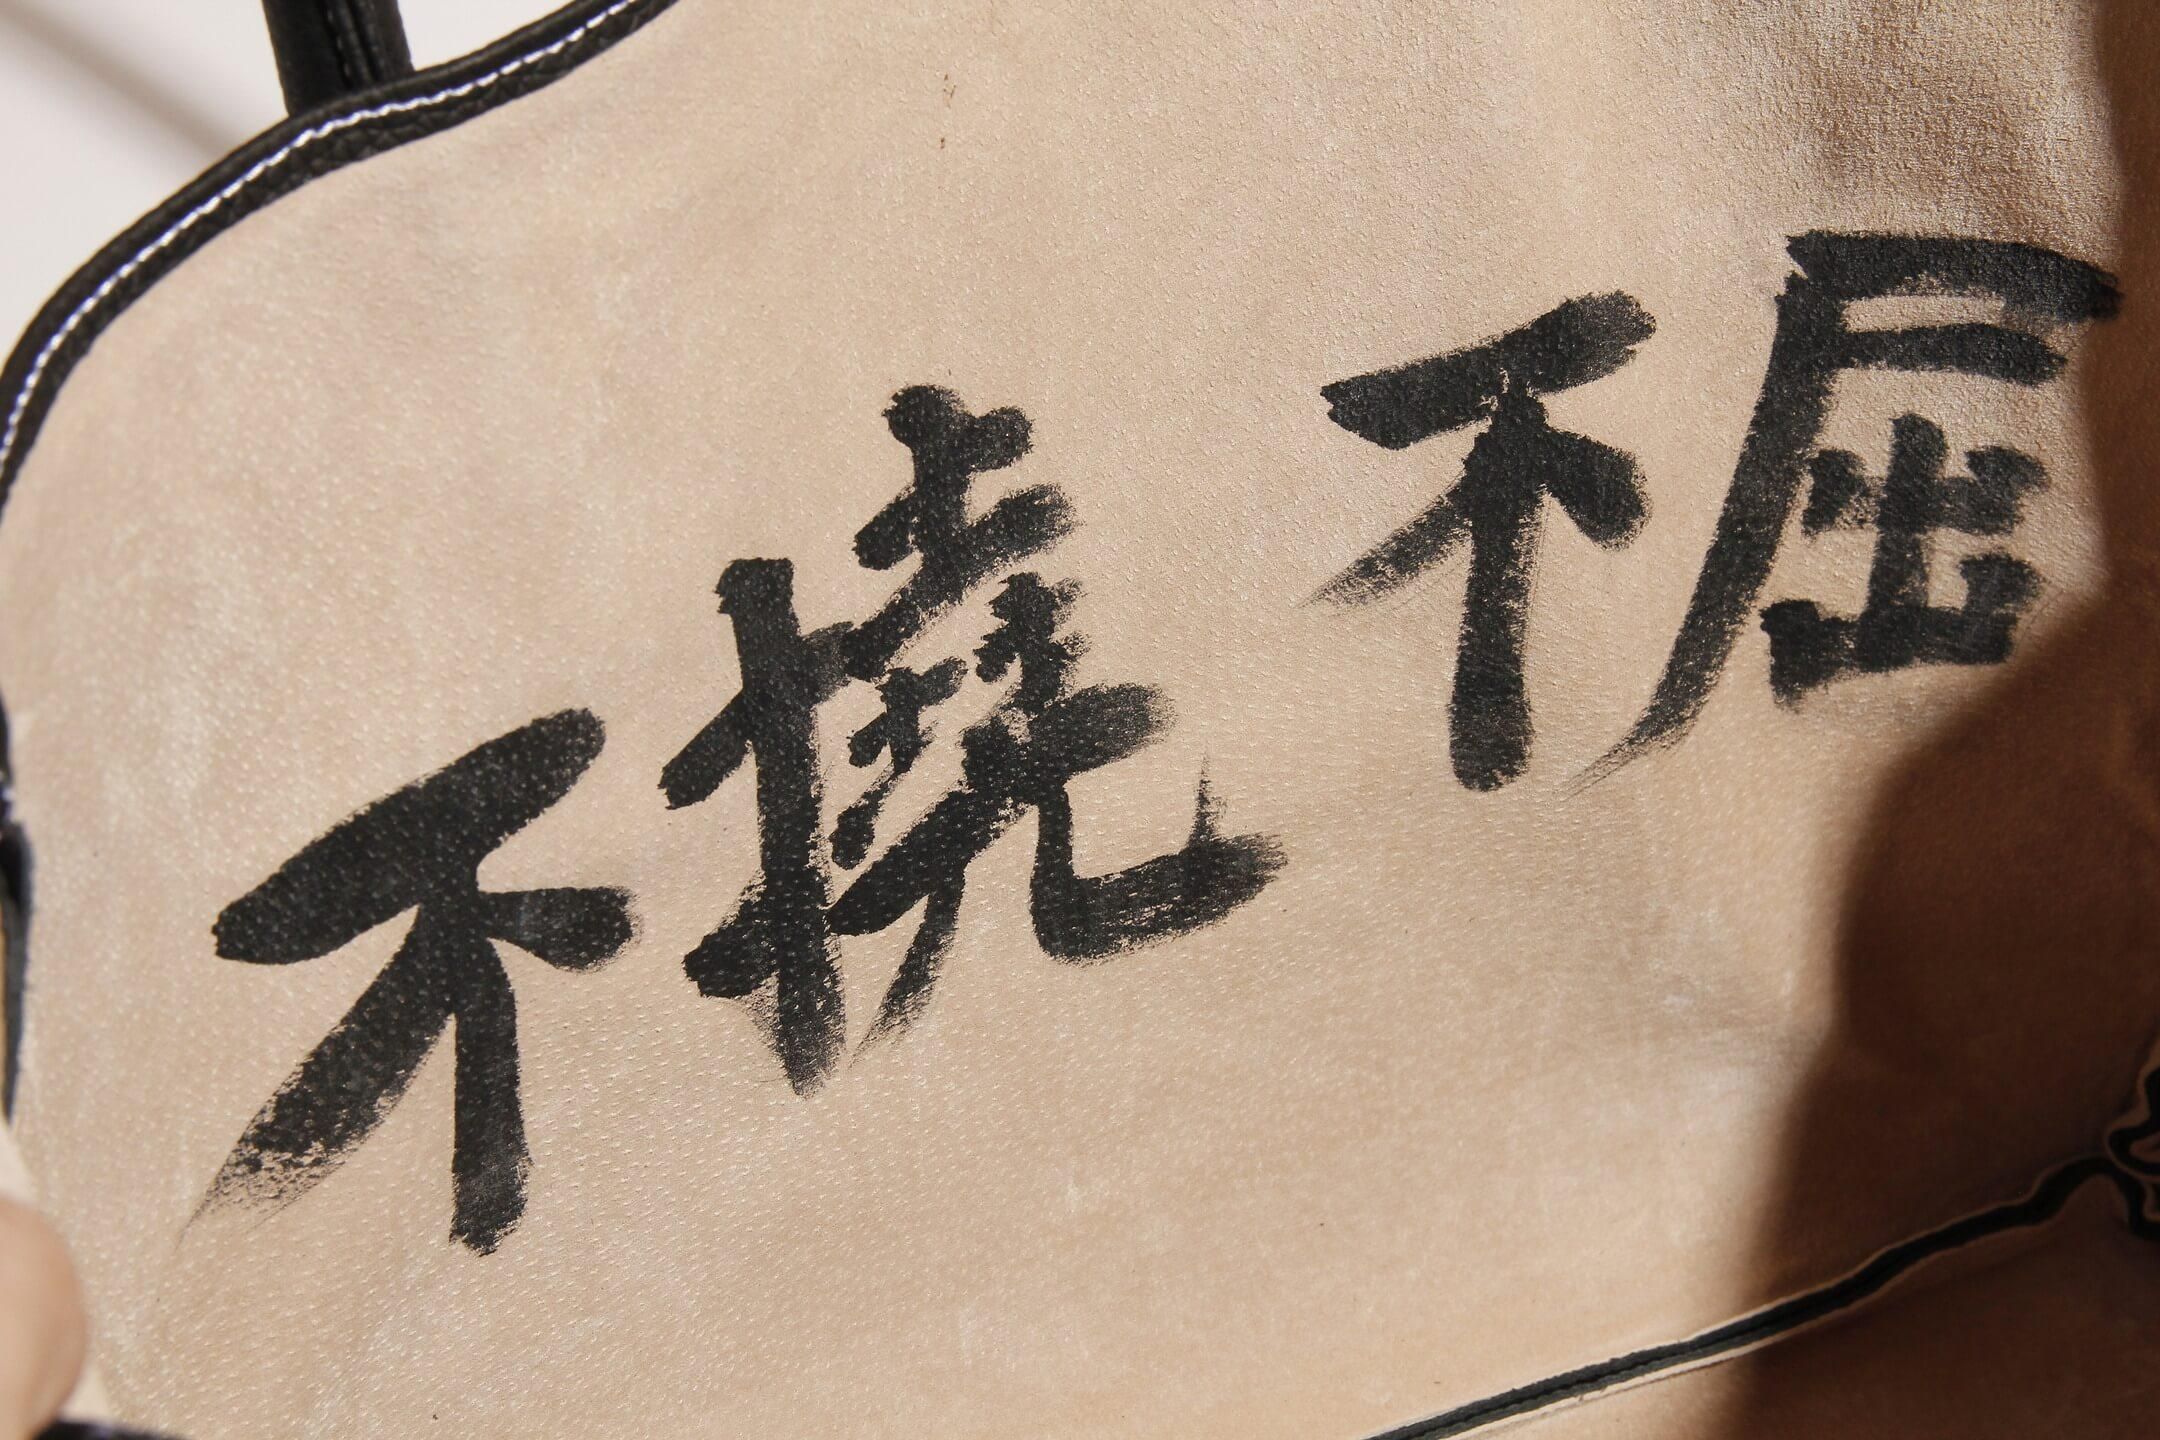 不撓不屈